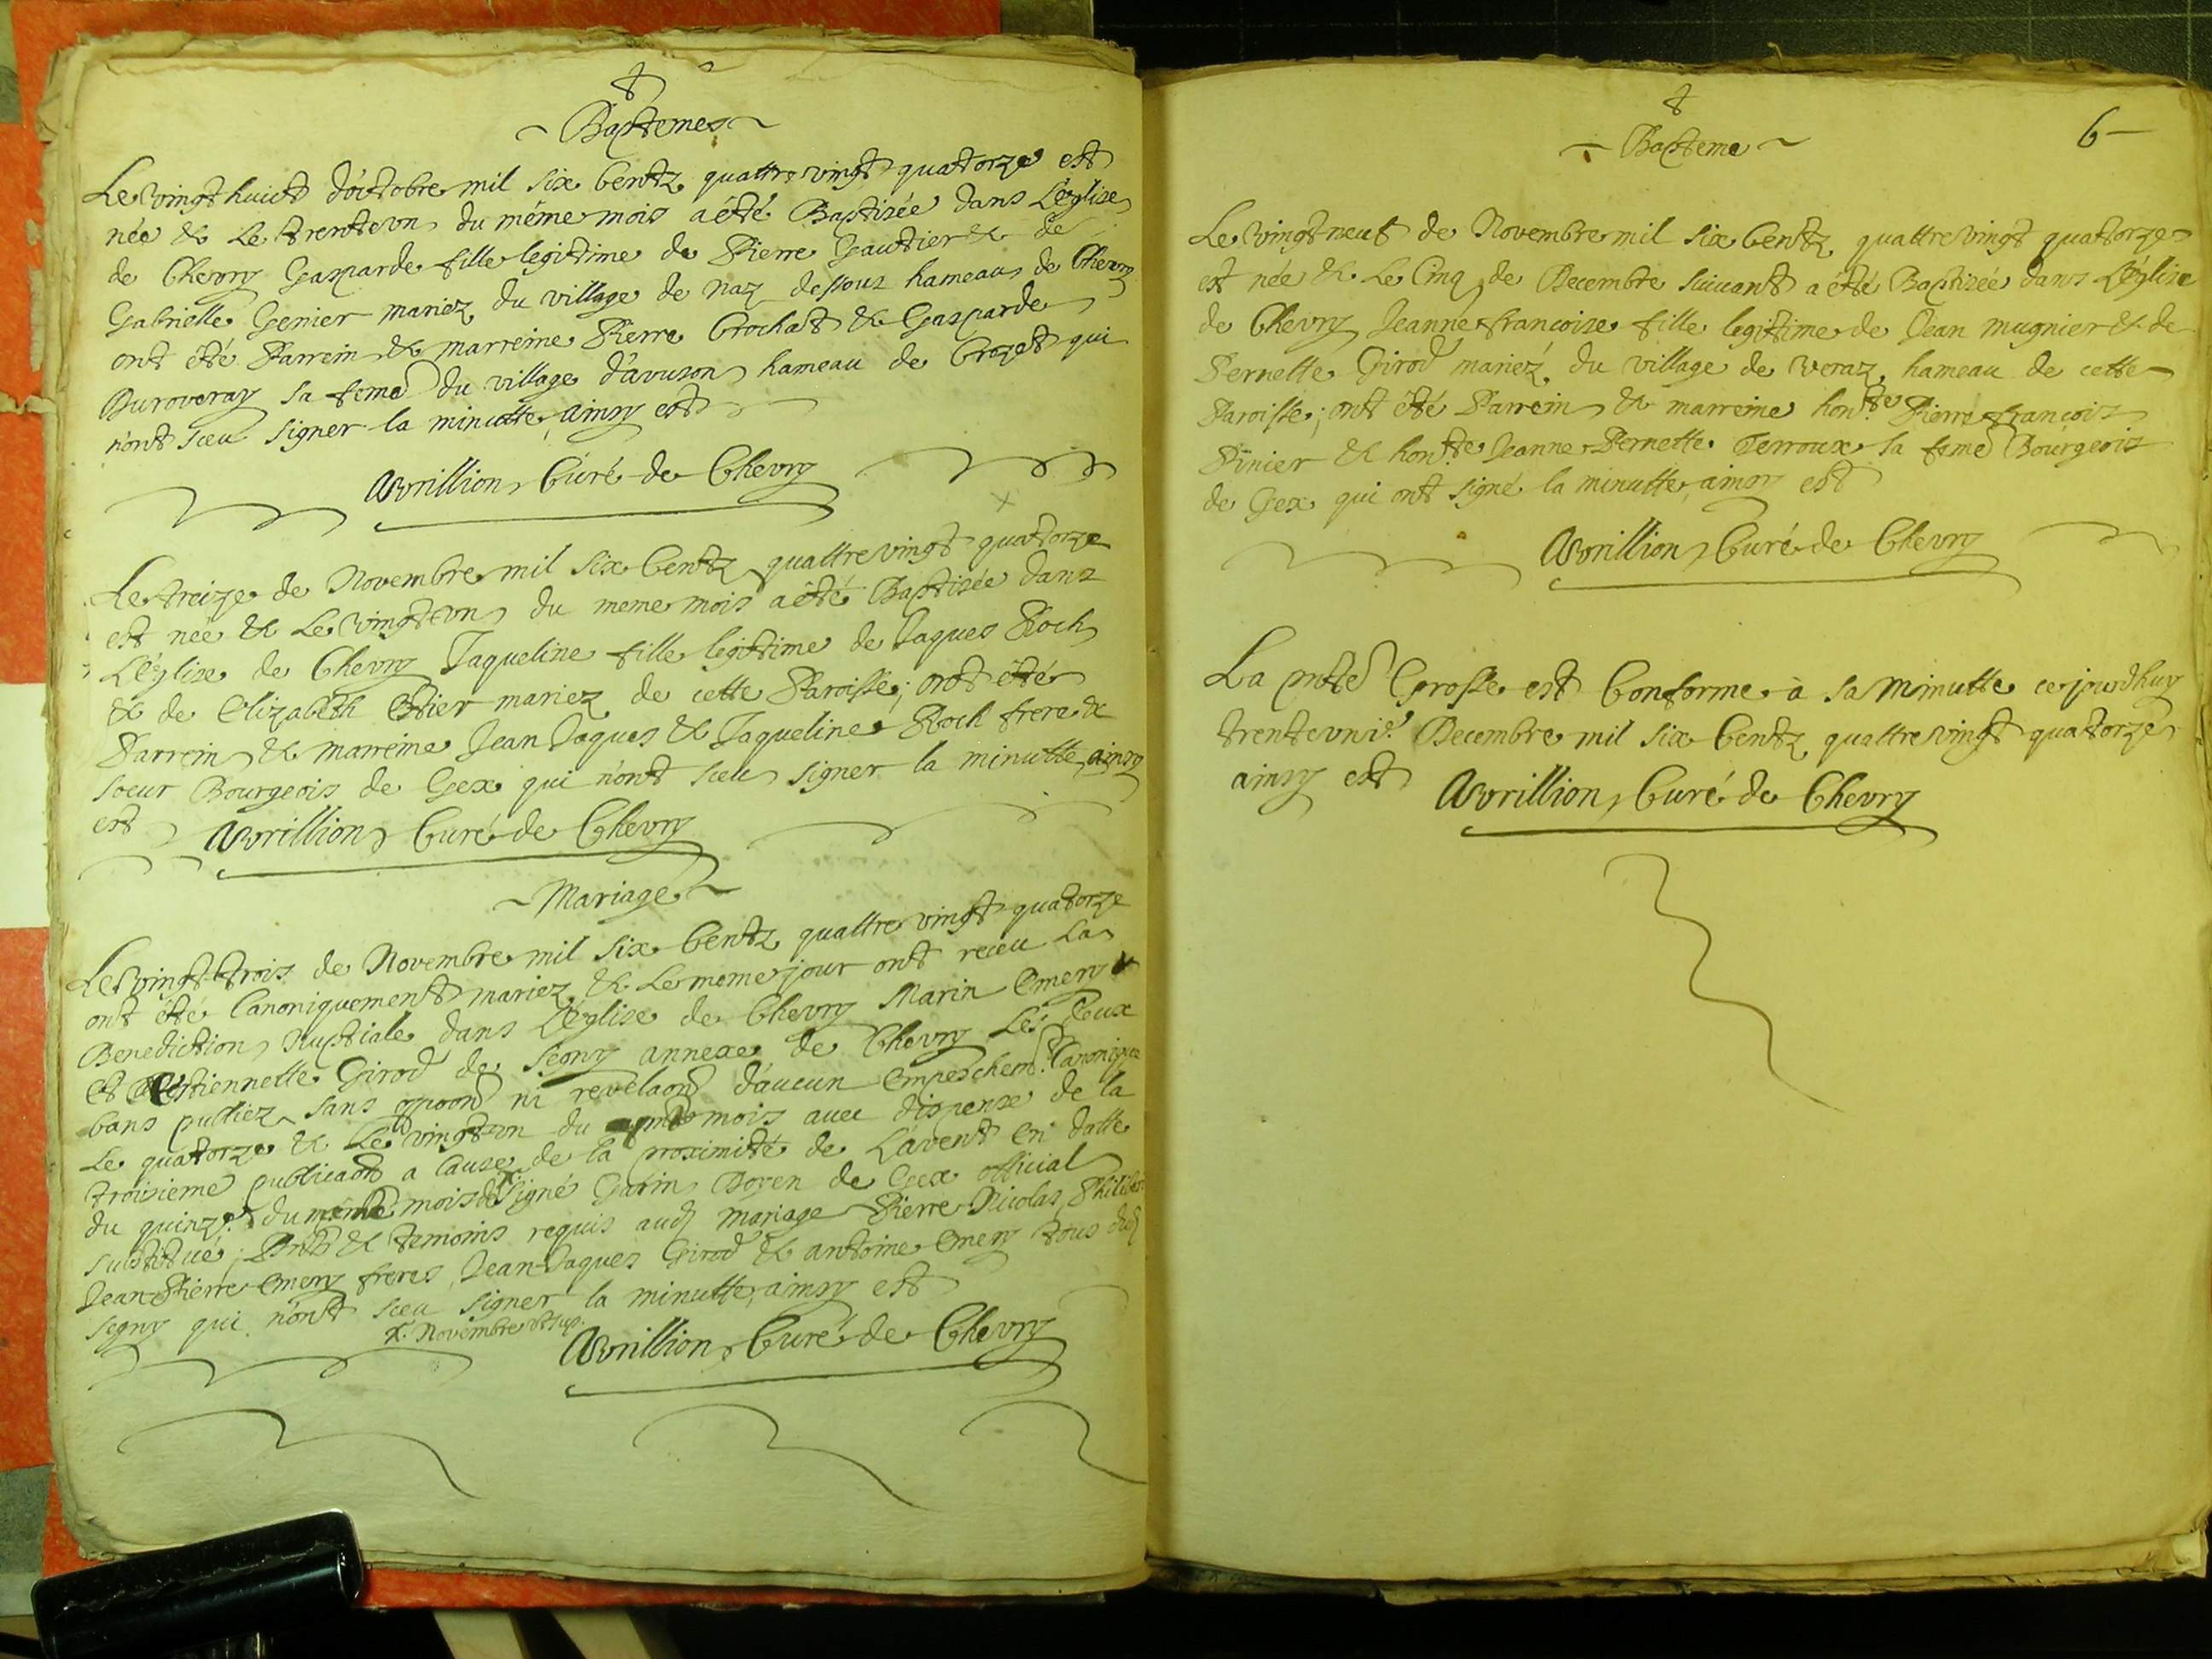 Baptemes
Le vingt huict d'octobre mil six Centz quattre vingt quatorze est
née & Le trente un du même mois a été Baptizée dans L'église
de Chevry Gasparde fille legitime de Pierre Gautier & de
Gabrielle Genier mariez du village de naz dessous hameau de Chevry
ont été Parrein & marreine Pierre Crochat & Gasparde
Duroveray sa feme du village d'avuson hameau de Crozet qui
n'ont sceu signer la minutte, ainsy est
Avrillion Curé de Chevry
Le treize de Novembre mil six Centz quattre vingt quatorze
est née & Le vingt un du meme mois a été Baptizée dans
L'église de Chevry Jaqueline fille legitime de Jaques Roch
& de Elizabeth mariez de cette Paroisse; ont été
Parrein & marreine Jean Jaques & Jaqueline Roch frere &
soeur Bourgeois de Gex qui n'ont sceu signer la minutte, ainsy
est Avrillion Curé de Chevry
Mariage
Le vingt trois de Novembre mil six Centz quattre vingt quatorze
ont été Canoniquement mariez & Le meme jour ont receu La
Benediction Nuptiale dans L'église de Chevry Marin Emery
et Estiennette Girod de segny annexe de Chevry Les deux
bans publiez sans oppoon ni revelaon d'aucun Empeschemt. Canonique
Le quatorze & Le vingt un du mois avec dispense de la
troisieme publicaon a Cause de la proximité de L'avent En datte
du quinze du même mois & signé Garin Doyen de Gex official
substitué; & temoins requis aud. mariage Pierre Nicolas, Philibert
Jean Pierre Emery freres, Jean-Jaques Girod & antoine Emery tous dud.
segny qui n'ont sceu signer la minutte, ainsy est
x. Novembre ut sup.
Avrillion Curé de Chevry
6
Bapteme
Le vingt neuf de Novembre mil six Centz quattre vingt quatorze
est née & Le Cinq de Decembre suivant a été Baptizée dans L'église
de Chevry Jeanne francoise fille legitime de Jean mugnier & de
Pernette Girod mariez du village de veraz hameau de cette
Paroisse; ont été Parrein & marreine honte. Pierre francois
Pinier & honte. Jeanne Pernette Terroux sa feme Bourgeois
de Gex qui ont signé la minutte, ainsy est
Avrillion Curé de Chevry
La pnte Grosse est Conforme à sa Minutte ce jourd'huy
trente un Decembre mil six Centz quattre vingt quatorze
ainsy est Avrillion Curé de Chevry